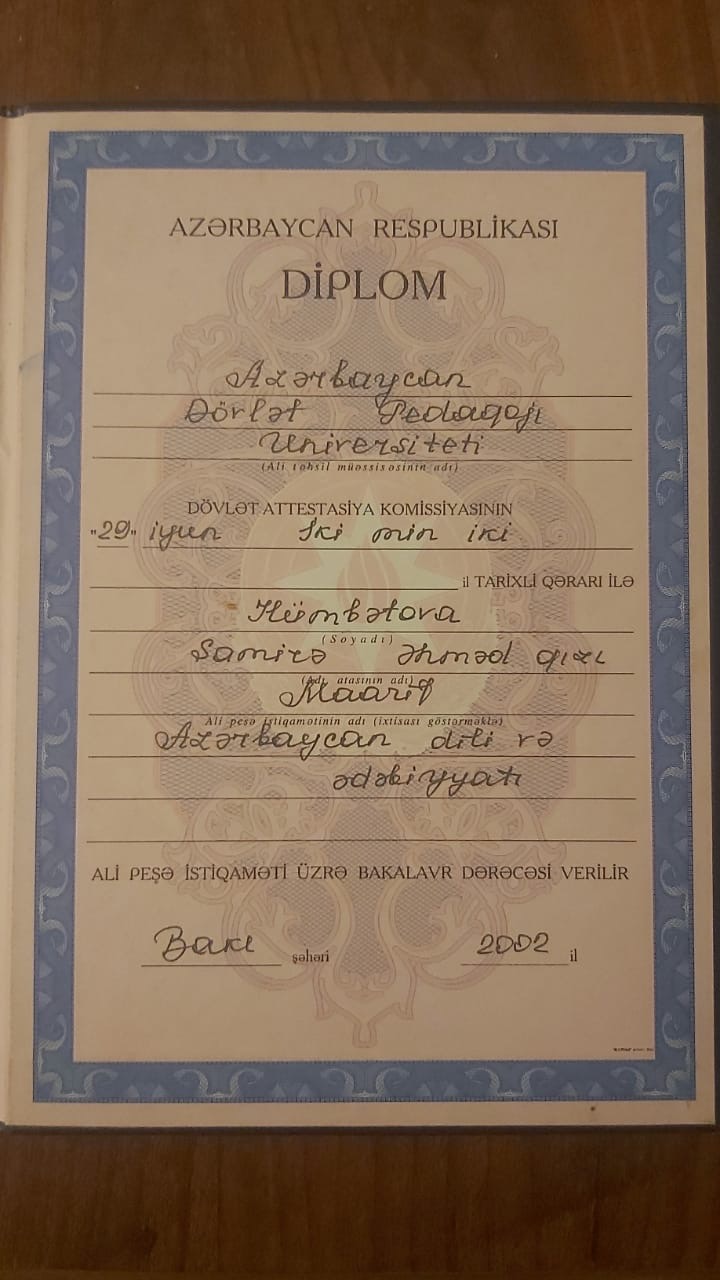 AZƏRBAYCAN RESPUBLİKASI
DİPLOM
Azərbaycan
Dövlət Pedaqoji
Universiteti
(Ali təhsil müəssisəsinin adı)
DÖVLƏT ATTESTASİYA KOMİSSİYASININ
"29" iyun İki min iki
il TARİXLİ QƏRARI İLƏ
Hümbətova
(Soyadı)
Samirə Əhməd qızı
(Adı, atasının adı)
Maarif
Ali peşə istiqamətinin adı (ixtisası göstərməklə)
Azərbaycan dili və
ədəbiyyatı
ALİ PEŞƏ İSTİQAMƏTİ ÜZRƏ BAKALAVR DƏRƏCƏSİ VERİLİR
Bakı şəhəri 2002 il